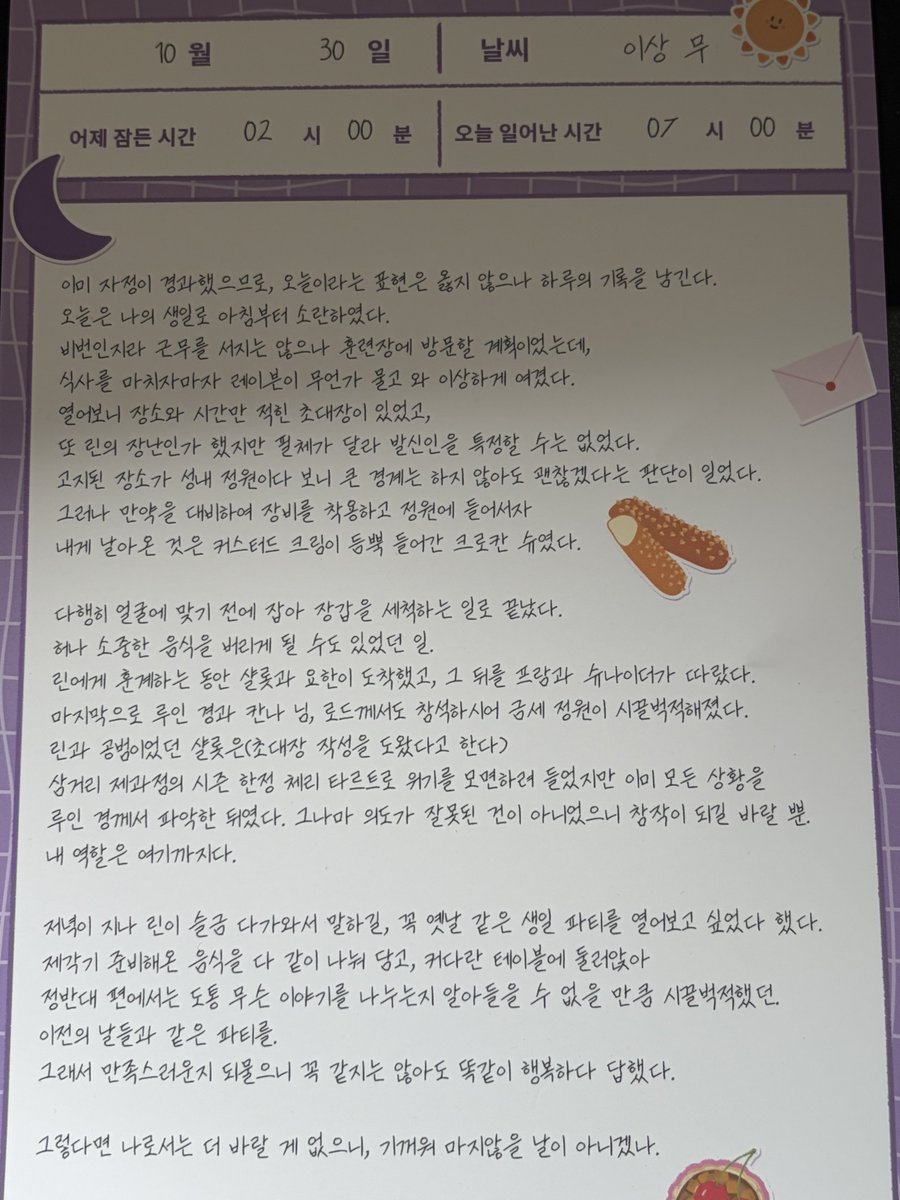 10 월 30 일 날씨 이상 무
어제 잠든 시간 02 시 00 분 오늘 일어난 시간 07 시 00 분
이미 자정이 경과했으므로, 오늘이라는 표현은 옳지 않으나 하루의 기록을 남긴다.
오늘은 나의 생일로 아침부터 소란하였다.
비번인지라 근무를 서지는 않으나 훈련장에 방문할 계획이었는데,
식사를 마치자마자 레이븐이 무언가 물고 와 이상하게 여겼다.
열어보니 장소와 시간만 적힌 초대장이 있었고,
또 린의 장난인가 했지만 필체가 달라 발신인을 특정할 수는 없었다.
고지된 장소가 성내 정원이다 보니 큰 경계는 하지 않아도 괜찮겠다는 판단이 일었다.
그러나 만약을 대비하여 장비를 착용하고 정원에 들어서자
내게 날아온 것은 커스터드 크림이 듬뿍 들어간 크로칸 슈였다.
다행히 얼굴에 맞기 전에 잡아 장갑을 세척하는 일로 끝났다.
허나 소중한 음식을 버리게 될 수도 있었던 일.
린에게 훈계하는 동안 샬롯과 요한이 도착했고, 그 뒤를 프람과 슈나이더가 따랐다.
마지막으로 루인 경과 칸나 님, 로드께서도 참석하시어 금세 정원이 시끌벅적해졌다.
린과 공범이었던 샬롯은(초대장 작성을 도왔다고 한다)
삼거리 제과점의 시즌 한정 체리 타르트로 위기를 모면하려 들었지만 이미 모든 상황을
루인 경께서 파악한 뒤였다. 그나마 의도가 잘못된 건이 아니었으니 참작이 되길 바랄 뿐.
내 역할은 여기까지다.
저녁이 지나 린이 슬금 다가와서 말하길, 꼭 옛날 같은 생일 파티를 열어보고 싶었다 했다.
제각기 준비해온 음식을 다 같이 나눠 담고, 커다란 테이블에 둘러앉아
정반대 편에서는 도통 무슨 이야기를 나누는지 알아들을 수 없을 만큼 시끌벅적했던.
이전의 날들과 같은 파티를.
그래서 만족스러운지 되물으니 꼭 같지는 않아도 똑같이 행복하다 답했다.
그렇다면 나로서는 더 바랄 게 없으니, 기꺼워 마지않을 날이 아니겠나.